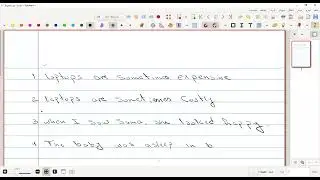 1 laptops are sometimes expensive
2 laptops are sometimes Costly
3 when I saw Suma, she looked happy.
4 The baby was asleep in b